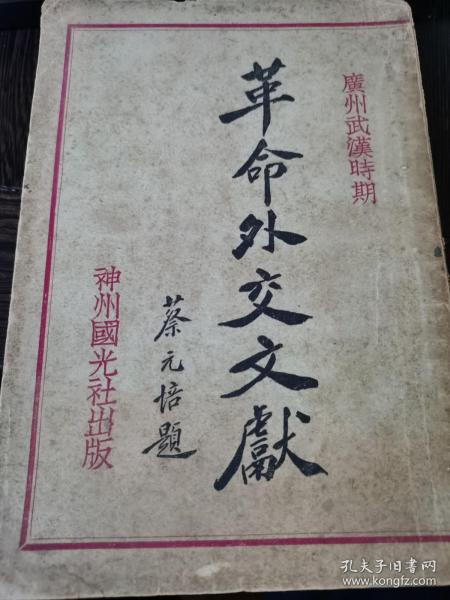 廣州武漢時期
革命外交文獻
蔡元培題
神州國光社出版
孔夫子旧书网
www.kongfz.com